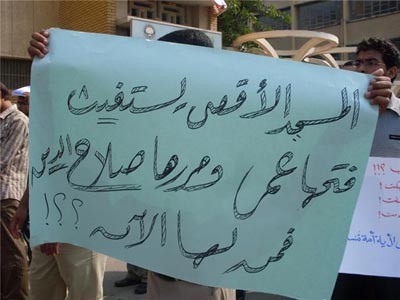 المسجد الأقصى يستغيث
فتحها عمر وحررها صلاح الدين
فمن لها الآن ؟؟!!